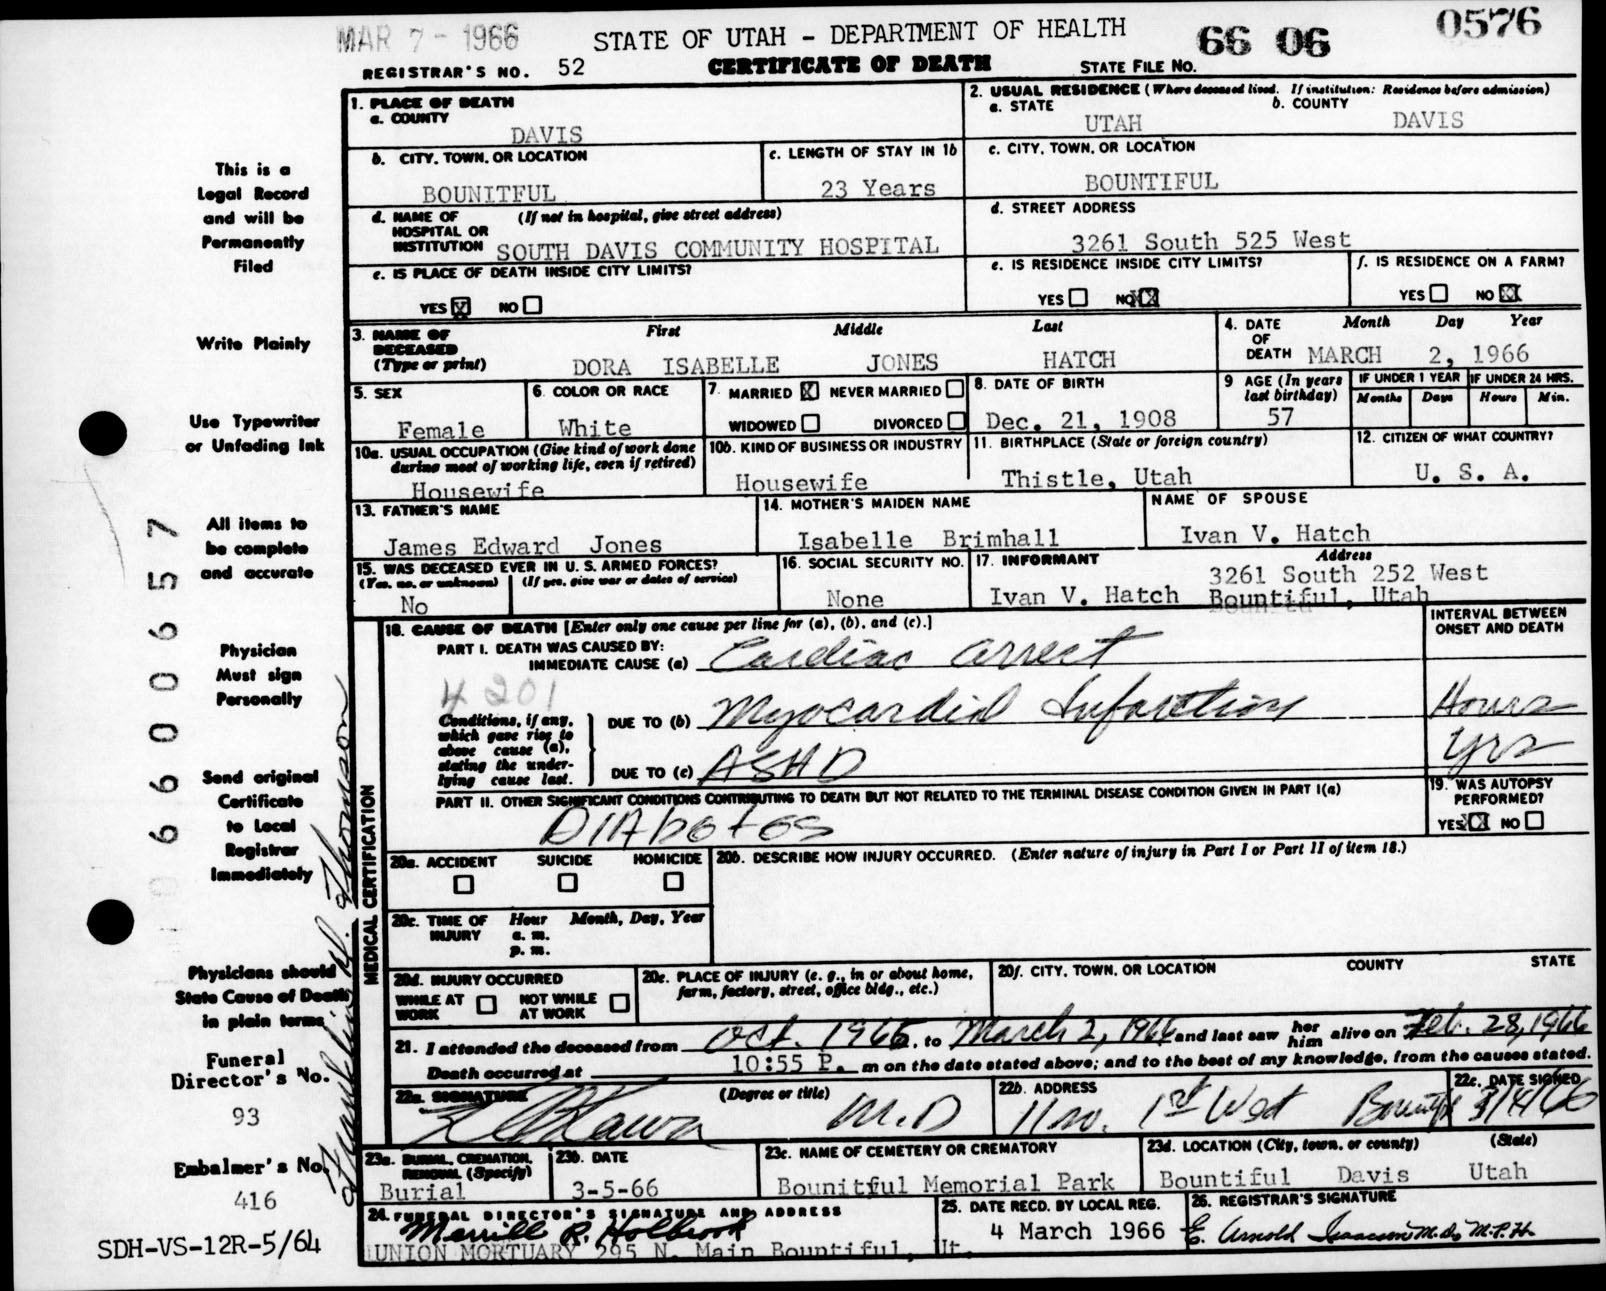 MAR 7 - 1966
STATE OF UTAH - DEPARTMENT OF HEALTH
66 06
0576
REGISTRAR'S NO. 52
CERTIFICATE OF DEATH
STATE FILE NO.
1. PLACE OF DEATH
a. COUNTY
DAVIS
2. USUAL RESIDENCE (Where deceased lived. If institution: Residence before admission)
a. STATE
b. COUNTY
UTAH
DAVIS
b. CITY, TOWN, OR LOCATION
BOUNITFUL
c. LENGTH OF STAY IN 1b
23 Years
c. CITY, TOWN, OR LOCATION
BOUNTIFUL
d. NAME OF HOSPITAL OR INSTITUTION
(If not in hospital, give street address)
SOUTH DAVIS COMMUNITY HOSPITAL
d. STREET ADDRESS
3261 South 525 West
e. IS PLACE OF DEATH INSIDE CITY LIMITS?
YES X NO
e. IS RESIDENCE INSIDE CITY LIMITS?
YES NO X
f. IS RESIDENCE ON A FARM?
YES NO X
3. NAME OF DECEASED (Type or print)
First Middle Last
DORA ISABELLE JONES HATCH
4. DATE OF DEATH
Month Day Year
MARCH 2, 1966
5. SEX
Female
6. COLOR OR RACE
White
7. MARRIED X NEVER MARRIED
WIDOWED DIVORCED
8. DATE OF BIRTH
Dec. 21, 1908
9 AGE (In years last birthday)
57
IF UNDER 1 YEAR
Months Days
IF UNDER 24 HRS.
Hours Min.
10a. USUAL OCCUPATION (Give kind of work done during most of working life, even if retired)
Housewife
10b. KIND OF BUSINESS OR INDUSTRY
Housewife
11. BIRTHPLACE (State or foreign country)
Thistle, Utah
12. CITIZEN OF WHAT COUNTRY?
U. S. A.
13. FATHER'S NAME
James Edward Jones
14. MOTHER'S MAIDEN NAME
Isabelle Brimhall
NAME OF SPOUSE
Ivan V. Hatch
15. WAS DECEASED EVER IN U. S. ARMED FORCES?
(Yes, no, or unknown) (If yes, give war or dates of service)
No
16. SOCIAL SECURITY NO.
None
17. INFORMANT
Address
Ivan V. Hatch
3261 South 252 West
Bountiful, Utah
MEDICAL CERTIFICATION
18. CAUSE OF DEATH [Enter only one cause per line for (a), (b), and (c).]
INTERVAL BETWEEN ONSET AND DEATH
PART I. DEATH WAS CAUSED BY:
IMMEDIATE CAUSE (a) Cardiac arrest
4201
Conditions, if any, which gave rise to above cause (a), stating the underlying cause last.
DUE TO (b) Myocardial Infarction
Hours
DUE TO (c) ASHD
yrs
PART II. OTHER SIGNIFICANT CONDITIONS CONTRIBUTING TO DEATH BUT NOT RELATED TO THE TERMINAL DISEASE CONDITION GIVEN IN PART I(a)
DIAbetes
19. WAS AUTOPSY PERFORMED?
YES X NO
20a. ACCIDENT SUICIDE HOMICIDE
20b. DESCRIBE HOW INJURY OCCURRED. (Enter nature of injury in Part I or Part II of item 18.)
20c. TIME OF INJURY
Hour Month, Day, Year
a. m.
p. m.
20d. INJURY OCCURRED
WHILE AT WORK NOT WHILE AT WORK
20e. PLACE OF INJURY (e. g., in or about home, farm, factory, street, office bldg., etc.)
20f. CITY, TOWN, OR LOCATION COUNTY STATE
21. I attended the deceased from Oct. 1965, to March 2, 1966 and last saw her him alive on Feb. 28, 1966
Death occurred at 10:55 P. m on the date stated above; and to the best of my knowledge, from the causes stated.
22a. SIGNATURE (Degree or title)
M.D
22b. ADDRESS
1st West
22c. DATE SIGNED
3/4/66
23a. BURIAL, CREMATION, REMOVAL (Specify)
Burial
23b. DATE
3-5-66
23c. NAME OF CEMETERY OR CREMATORY
Bounitful Memorial Park
23d. LOCATION (City, town, or county) (State)
Bountiful Davis Utah
24. FUNERAL DIRECTOR'S SIGNATURE AND ADDRESS
Merrill R. Holbrook
UNION MORTUARY 295 N. Main Bountiful, Ut.
25. DATE RECD. BY LOCAL REG.
4 March 1966
26. REGISTRAR'S SIGNATURE
E. Arnold Isaacson M.D., M.P.H.
This is a
Legal Record
and will be
Permanently
Filed
Write Plainly
Use Typewriter
or Unfading Ink
All items to
be complete
and accurate
Physician
Must sign
Personally
Send original
Certificate
to Local
Registrar
Immediately
Physicians should
State Cause of Death
in plain terms
Funeral
Director's No.
93
Embalmer's No.
416
SDH-VS-12R-5/64
66000657
Franklin D. Thomason